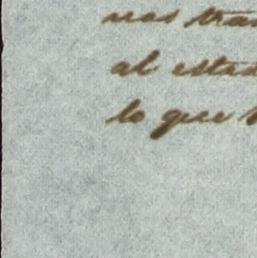 nas tran
al estad
lo que